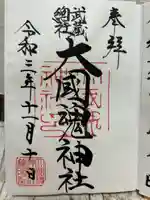 奉拝
武蔵
総社
大國魂神社
令和三年十一月十日